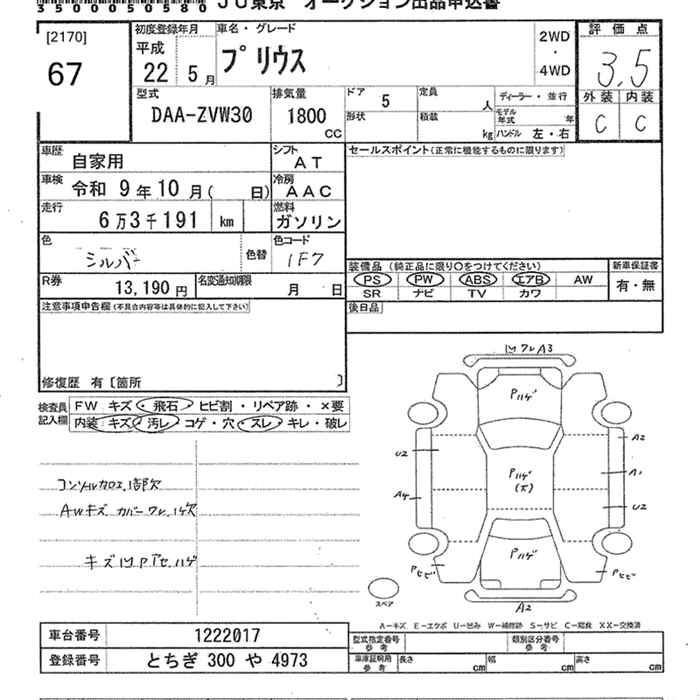 35000050580 JU東京 オークション出品申込書
[2170]
67
初度登録年月
平成
22 5月
車名・グレード
プリウス
2WD
・
4WD
評価点
3.5
外装 内装
C C
型式
DAA-ZVW30
排気量
1800
CC
ドア 5
形状
定員 人
積載 kg
ディーラー・並行
モデル年式 年
ハンドル 左・右
車歴 自家用
シフト AT
車検 令和 9年10月( 日)
冷房 AAC
走行 6万3千191 km
燃料 ガソリン
色 シルバー 色替
色コード 1F7
R券 13,190円
名変通知期限 月 日
セールスポイント(正常に機能するものに限ります)
装備品 (純正品に限り○をつけてください)
PS PW ABS エアB AW
SR ナビ TV カワ
新車保証書
有・無
後日品
注意事項申告欄(不具合内容等は具体的に記入して下さい)
修復歴 有〔箇所 〕
検査員記入欄
FW キズ・飛石・ヒビ割・リペア跡・×要
内装 キズ・汚レ・コゲ・穴・スレ・キレ・破レ
コンソルカロエ、1部欠
AWキズ カバーワレ、1ケ欠
キズ凹Pアセ、ハゲ
凹ワレA3
Pハゲ
U2
A2
Pハゲ
(大)
A1
A4
U2
Pハゲ
Pヒビ
Pヒビ
A2
スペア
A-キズ E-エクボ U-凹み W-補修跡 S-サビ C-腐食 XX-交換済
車台番号 1222017
登録番号 とちぎ 300 や 4973
型式指定番号
参考
類別区分番号
参考
車庫証明用
参考
長さ cm 幅 cm 高さ cm